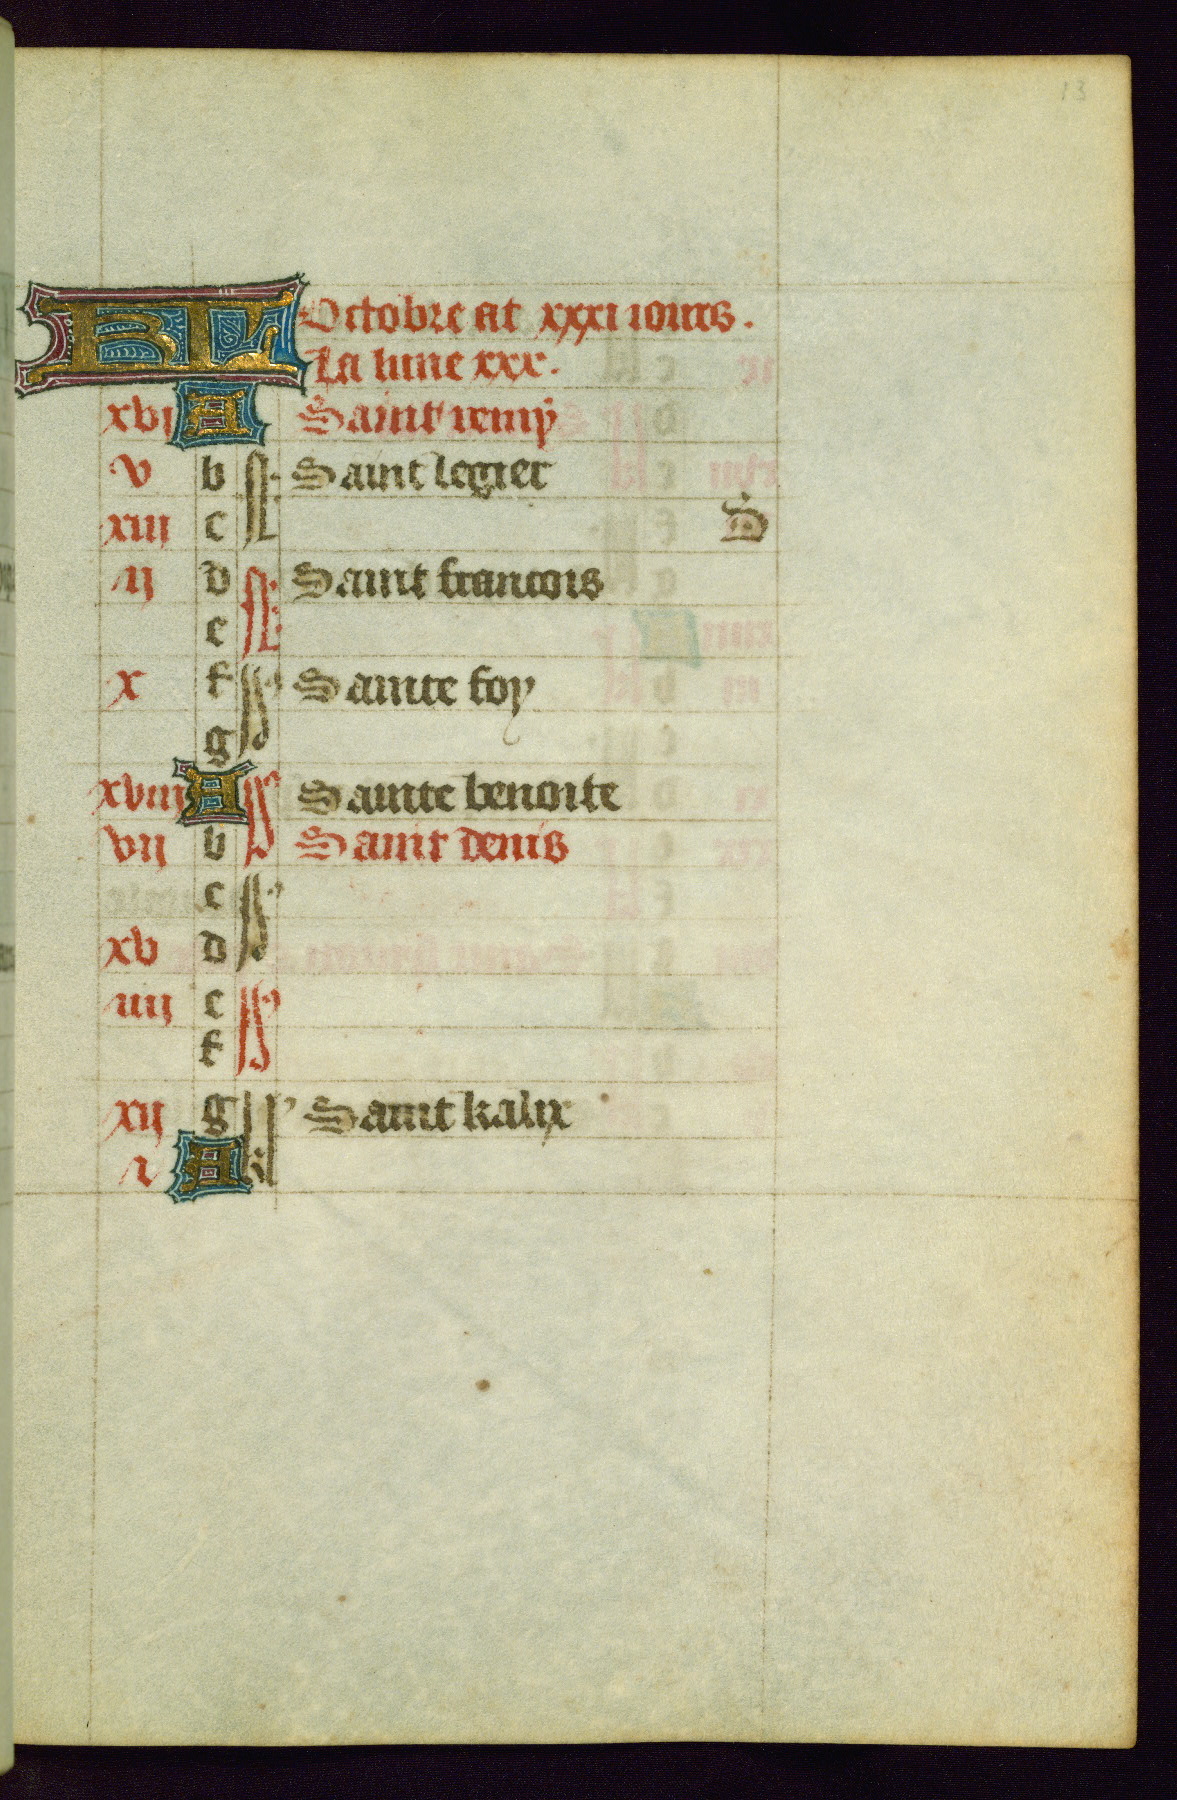 13
KL Octobre at xxxi iours.
La lune xxx.
xvi A Saint remy
v b Saint legier
xiii c D
ii d Saint francois
e
x f Sainte foy
g
xviii A Sainte benoite
vii b Saint denis
c
xv d
iiii e
f
xii g Saint kalix
i A